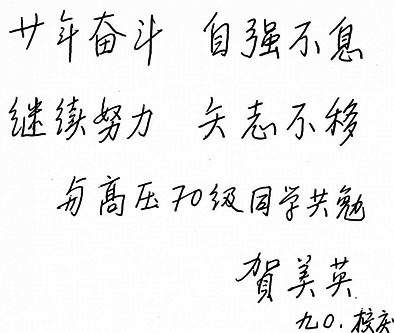 廿年奋斗 自强不息
继续努力 矢志不移
与高压70级同学共勉
賀美英
九〇.校庆